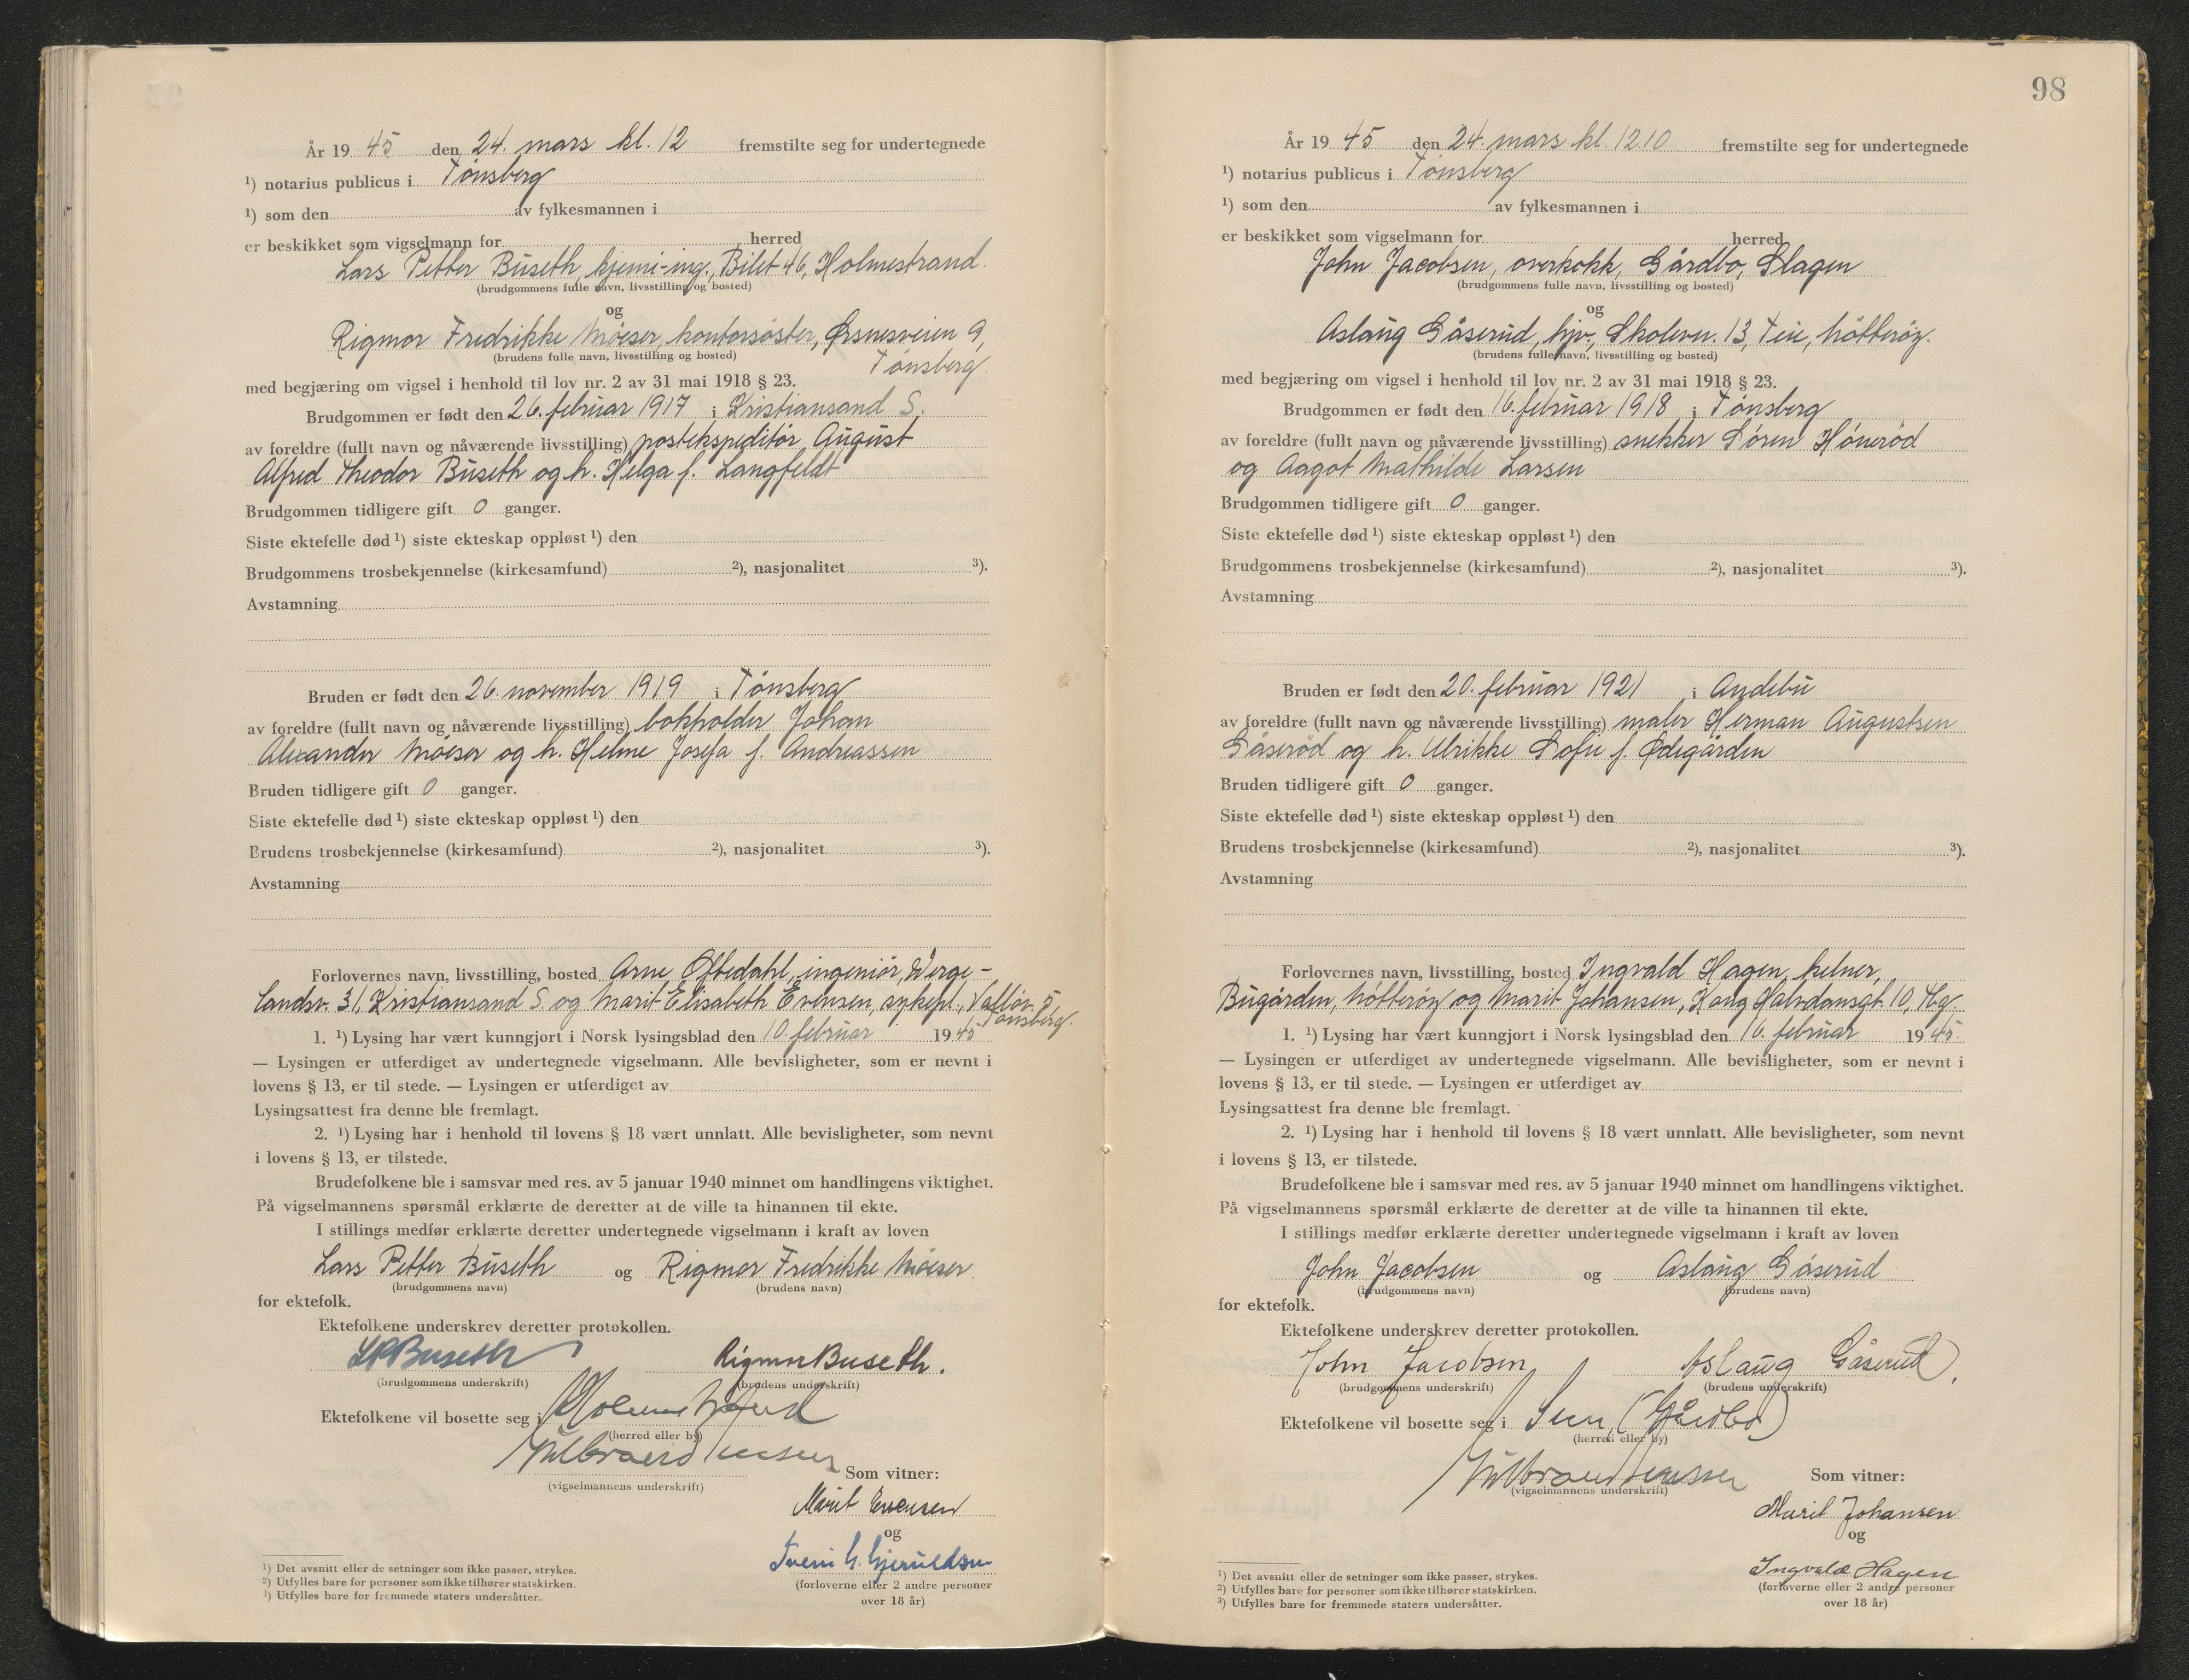 År 19 45 den 24. mars kl. 12 fremstilte seg for undertegnede
¹) notarius publicus i Tønsberg
¹) som den av fylkesmannen i
er beskikket som vigselmann for herred
Lars Petter Buseth, kjemi-ing., Bilet 46, Holmestrand.
(brudgommens fulle navn, livsstilling og bosted)
og
Rigmor Fredrikke Møeser, kontorsøster, Ørsnesveien 9,
(brudens fulle navn, livsstilling og bosted)
Tønsberg.
med begjæring om vigsel i henhold til lov nr. 2 av 31 mai 1918 § 23.
Brudgommen er født den 26. februar 1917 i Kristiansand S.
av foreldre (fullt navn og nåværende livsstilling) postekspeditør August
Alfred Theodor Buseth og h. Helga f. Langfeldt
Brudgommen tidligere gift 0 ganger.
Siste ektefelle død ¹) siste ekteskap oppløst ¹) den
Brudgommens trosbekjennelse (kirkesamfund) ²), nasjonalitet ³).
Avstamning
Bruden er født den 26. november 1919 i Tønsberg
av foreldre (fullt navn og nåværende livsstilling) bokholder Johan
Alexander Møeser og h. Helene Josefa f. Andreassen
Bruden tidligere gift 0 ganger.
Siste ektefelle død ¹) siste ekteskap oppløst ¹) den
Brudens trosbekjennelse (kirkesamfund) ²), nasjonalitet ³).
Avstamning
Forlovernes navn, livsstilling, bosted Arne Øftedahl, ingeniør, Werge-
landsv. 31, Kristiansand S. og Marit Elisabeth Evensen, sykepl., Valløv. 5,
Tønsberg.
1. ¹) Lysing har vært kunngjort i Norsk lysingsblad den 10. februar 19 45
— Lysingen er utferdiget av undertegnede vigselmann. Alle bevisligheter, som er nevnt i
lovens § 13, er til stede. — Lysingen er utferdiget av
Lysingsattest fra denne ble fremlagt.
2. ¹) Lysing har i henhold til lovens § 18 vært unnlatt. Alle bevisligheter, som nevnt
i lovens § 13, er tilstede.
Brudefolkene ble i samsvar med res. av 5 januar 1940 minnet om handlingens viktighet.
På vigselmannens spørsmål erklærte de deretter at de ville ta hinannen til ekte.
I stillings medfør erklærte deretter undertegnede vigselmann i kraft av loven
Lars Petter Buseth og Rigmor Fredrikke Møeser
(brudgommens navn) (brudens navn)
for ektefolk.
Ektefolkene underskrev deretter protokollen.
LPBuseth Rigmor Buseth.
(brudgommens underskrift) (brudens underskrift)
Ektefolkene vil bosette seg i Holmestrand
(herred eller by)
Som vitner:
(vigselmannens underskrift)
Marit Evensen
og
(forloverne eller 2 andre personer
over 18 år)
¹) Det avsnitt eller de setninger som ikke passer, strykes.
²) Utfylles bare for personer som ikke tilhører statskirken.
³) Utfylles bare for fremmede staters undersåtter.
98
År 19 45 den 24. mars kl. 12.10 fremstilte seg for undertegnede
¹) notarius publicus i Tønsberg
¹) som den av fylkesmannen i
er beskikket som vigselmann for herred
John Jacobsen, overkokk, Gårdbo, Slagen
(brudgommens fulle navn, livsstilling og bosted)
og
Aslaug Gåserud, hjv., Skolevn. 13, Teie, Nøtterøy.
(brudens fulle navn, livsstilling og bosted)
med begjæring om vigsel i henhold til lov nr. 2 av 31 mai 1918 § 23.
Brudgommen er født den 16. februar 1918 i Tønsberg
av foreldre (fullt navn og nåværende livsstilling) snekker Søren Hønerød
og Aagot Mathilde Larsen
Brudgommen tidligere gift 0 ganger.
Siste ektefelle død ¹) siste ekteskap oppløst ¹) den
Brudgommens trosbekjennelse (kirkesamfund) ²), nasjonalitet ³).
Avstamning
Bruden er født den 20. februar 1921 i Andebu
av foreldre (fullt navn og nåværende livsstilling) maler Herman Augustsen
Gåserød og h. Ulrikke Sofie f. Ødegården
Bruden tidligere gift 0 ganger.
Siste ektefelle død ¹) siste ekteskap oppløst ¹) den
Brudens trosbekjennelse (kirkesamfund) ²), nasjonalitet ³).
Avstamning
Forlovernes navn, livsstilling, bosted Ingvald Hagen, kelner,
Bugården, Nøtterøy og Marit Johansen, Haug Halvdansgt. 10, Tbg.
1. ¹) Lysing har vært kunngjort i Norsk lysingsblad den 16. februar 19 45.
— Lysingen er utferdiget av undertegnede vigselmann. Alle bevisligheter, som er nevnt i
lovens § 13, er til stede. — Lysingen er utferdiget av
Lysingsattest fra denne ble fremlagt.
2. ¹) Lysing har i henhold til lovens § 18 vært unnlatt. Alle bevisligheter, som nevnt
i lovens § 13, er tilstede.
Brudefolkene ble i samsvar med res. av 5 januar 1940 minnet om handlingens viktighet.
På vigselmannens spørsmål erklærte de deretter at de ville ta hinannen til ekte.
I stillings medfør erklærte deretter undertegnede vigselmann i kraft av loven
John Jacobsen og Aslaug Gåserud
(brudgommens navn) (brudens navn)
for ektefolk.
Ektefolkene underskrev deretter protokollen.
John Jacobsen Aslaug Gåserud.
(brudgommens underskrift) (brudens underskrift)
Ektefolkene vil bosette seg i Sem (Gårdbo)
(herred eller by)
Som vitner:
(vigselmannens underskrift)
Marit Johansen
og
Ingvald Hagen
(forloverne eller 2 andre personer
over 18 år)
¹) Det avsnitt eller de setninger som ikke passer, strykes.
²) Utfylles bare for personer som ikke tilhører statskirken.
³) Utfylles bare for fremmede staters undersåtter.